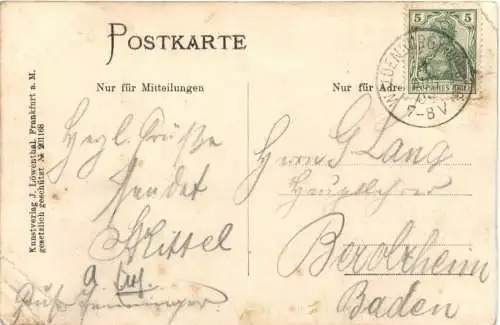 POSTKARTE
Nur für Mitteilungen
Nur für Adre
5 5
7-8V
Kunstverlag J. Löwenthal, Frankfurt a. M.
gesetzlich geschützt № 201168
Herzl. Grüße
sendet
Kittel
Gruß Henninger
Herrn G Lang
Hauptlehrer
Berolzheim
Baden